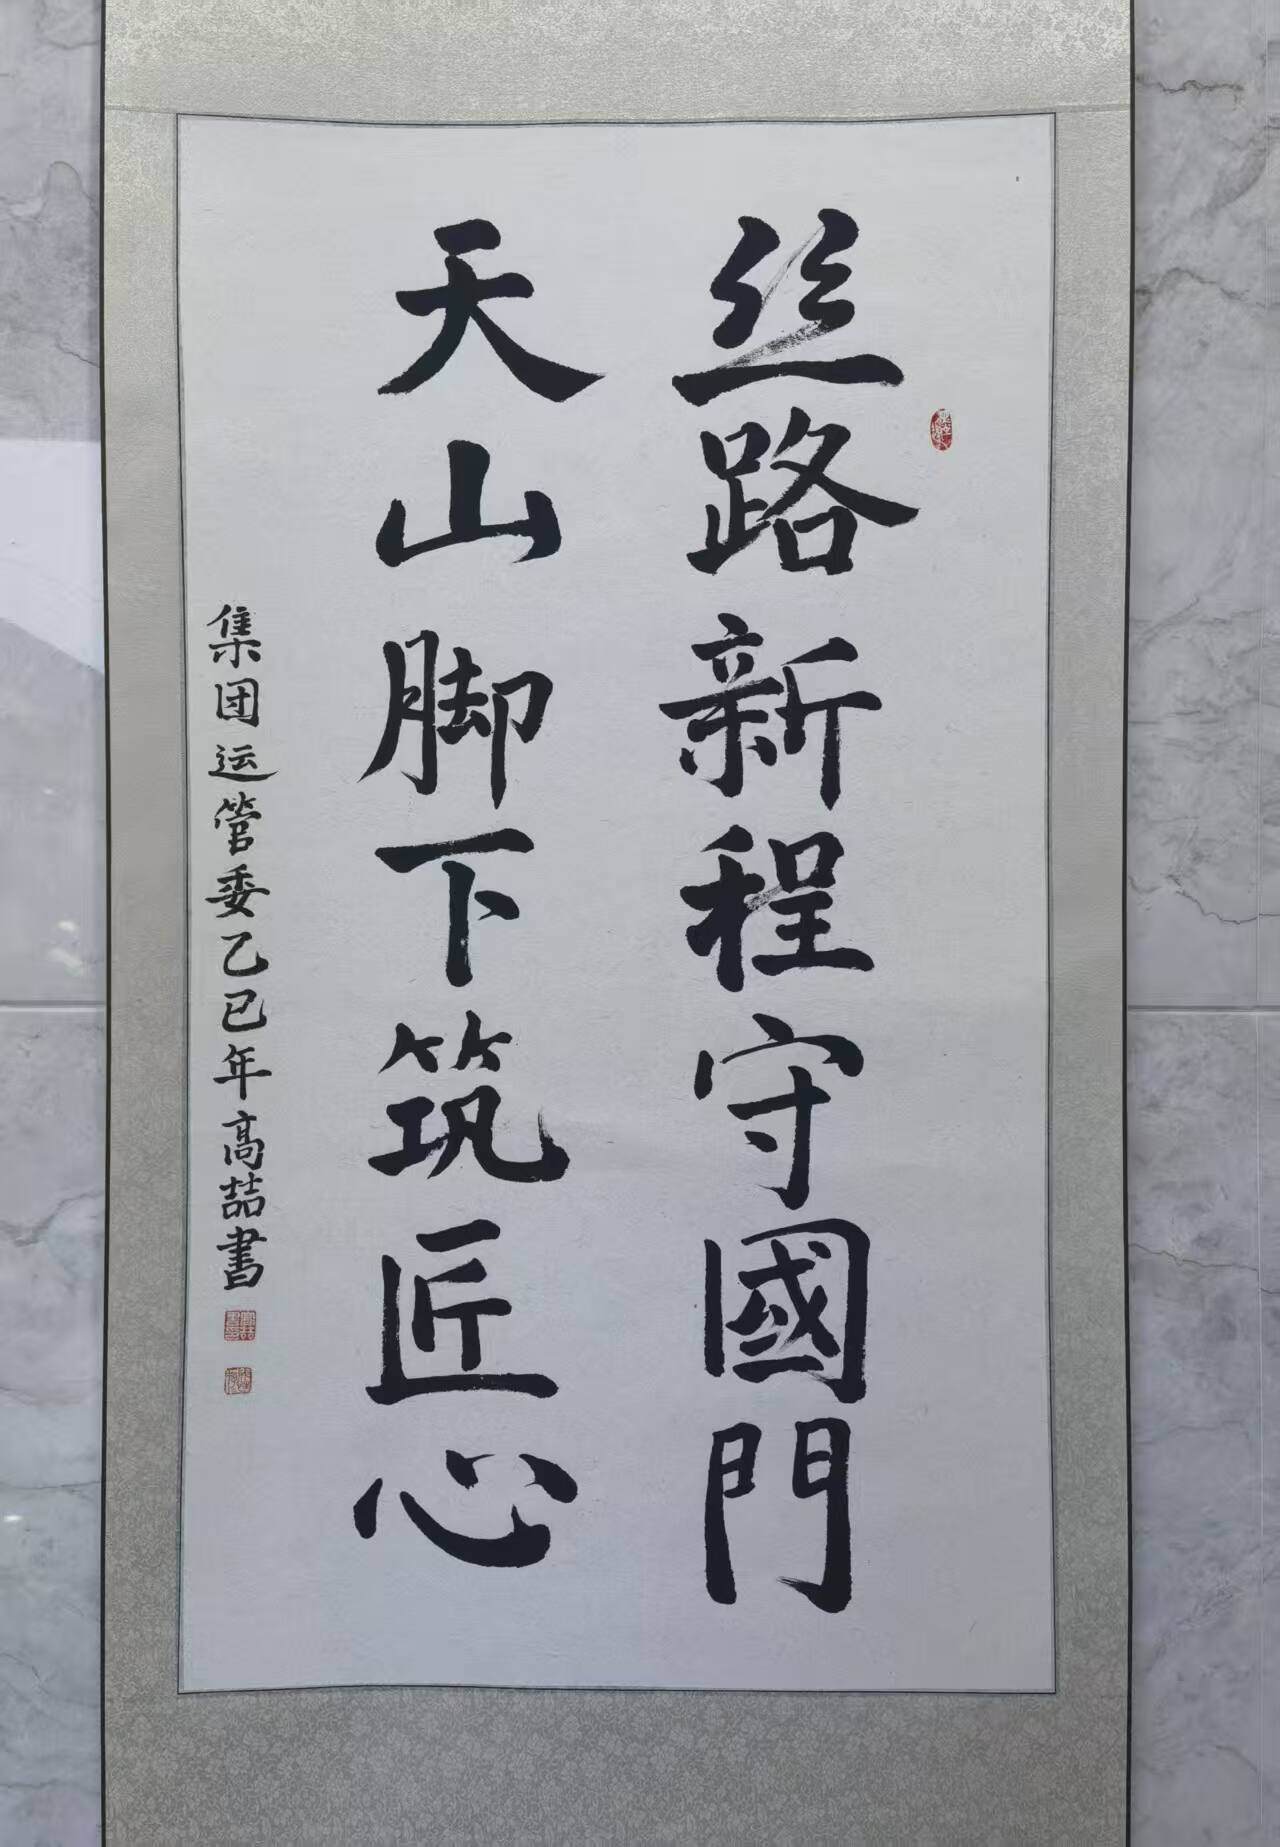 丝路新程守國門
天山脚下筑匠心
集团运管委乙巳年高喆書